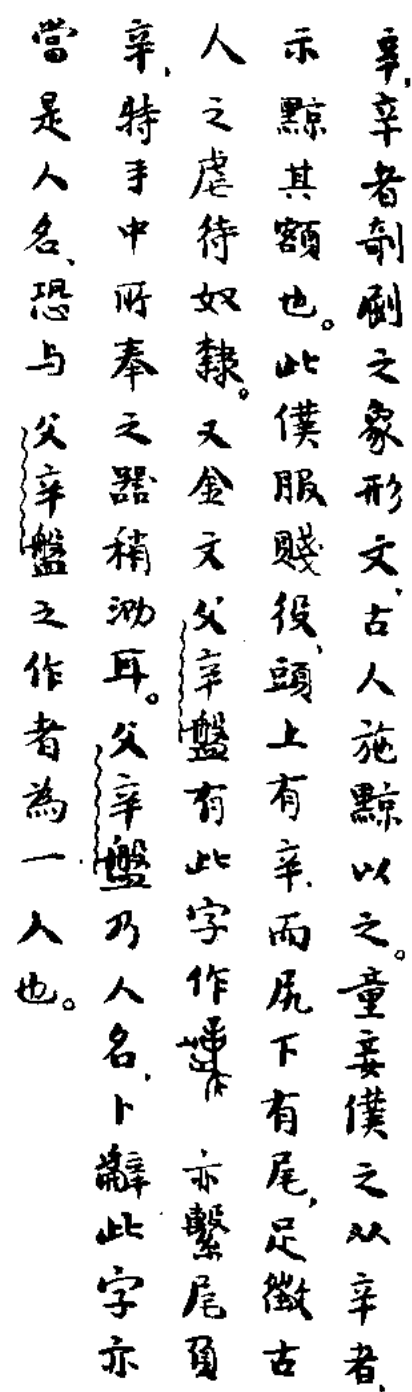 辛，辛者剞劂之象形文，古人施黥以之。童妾僕之从辛者，
示黥其額也。此僕服賤役，頭上有辛，而尻下有尾，足徵古
人之虐待奴隸。又金文父辛盤有此字作 亦繫尾頁
辛，特手中所奉之器稍泐耳。父辛盤乃人名，卜辭此字亦
當是人名，恐与父辛盤之作者為一人也。